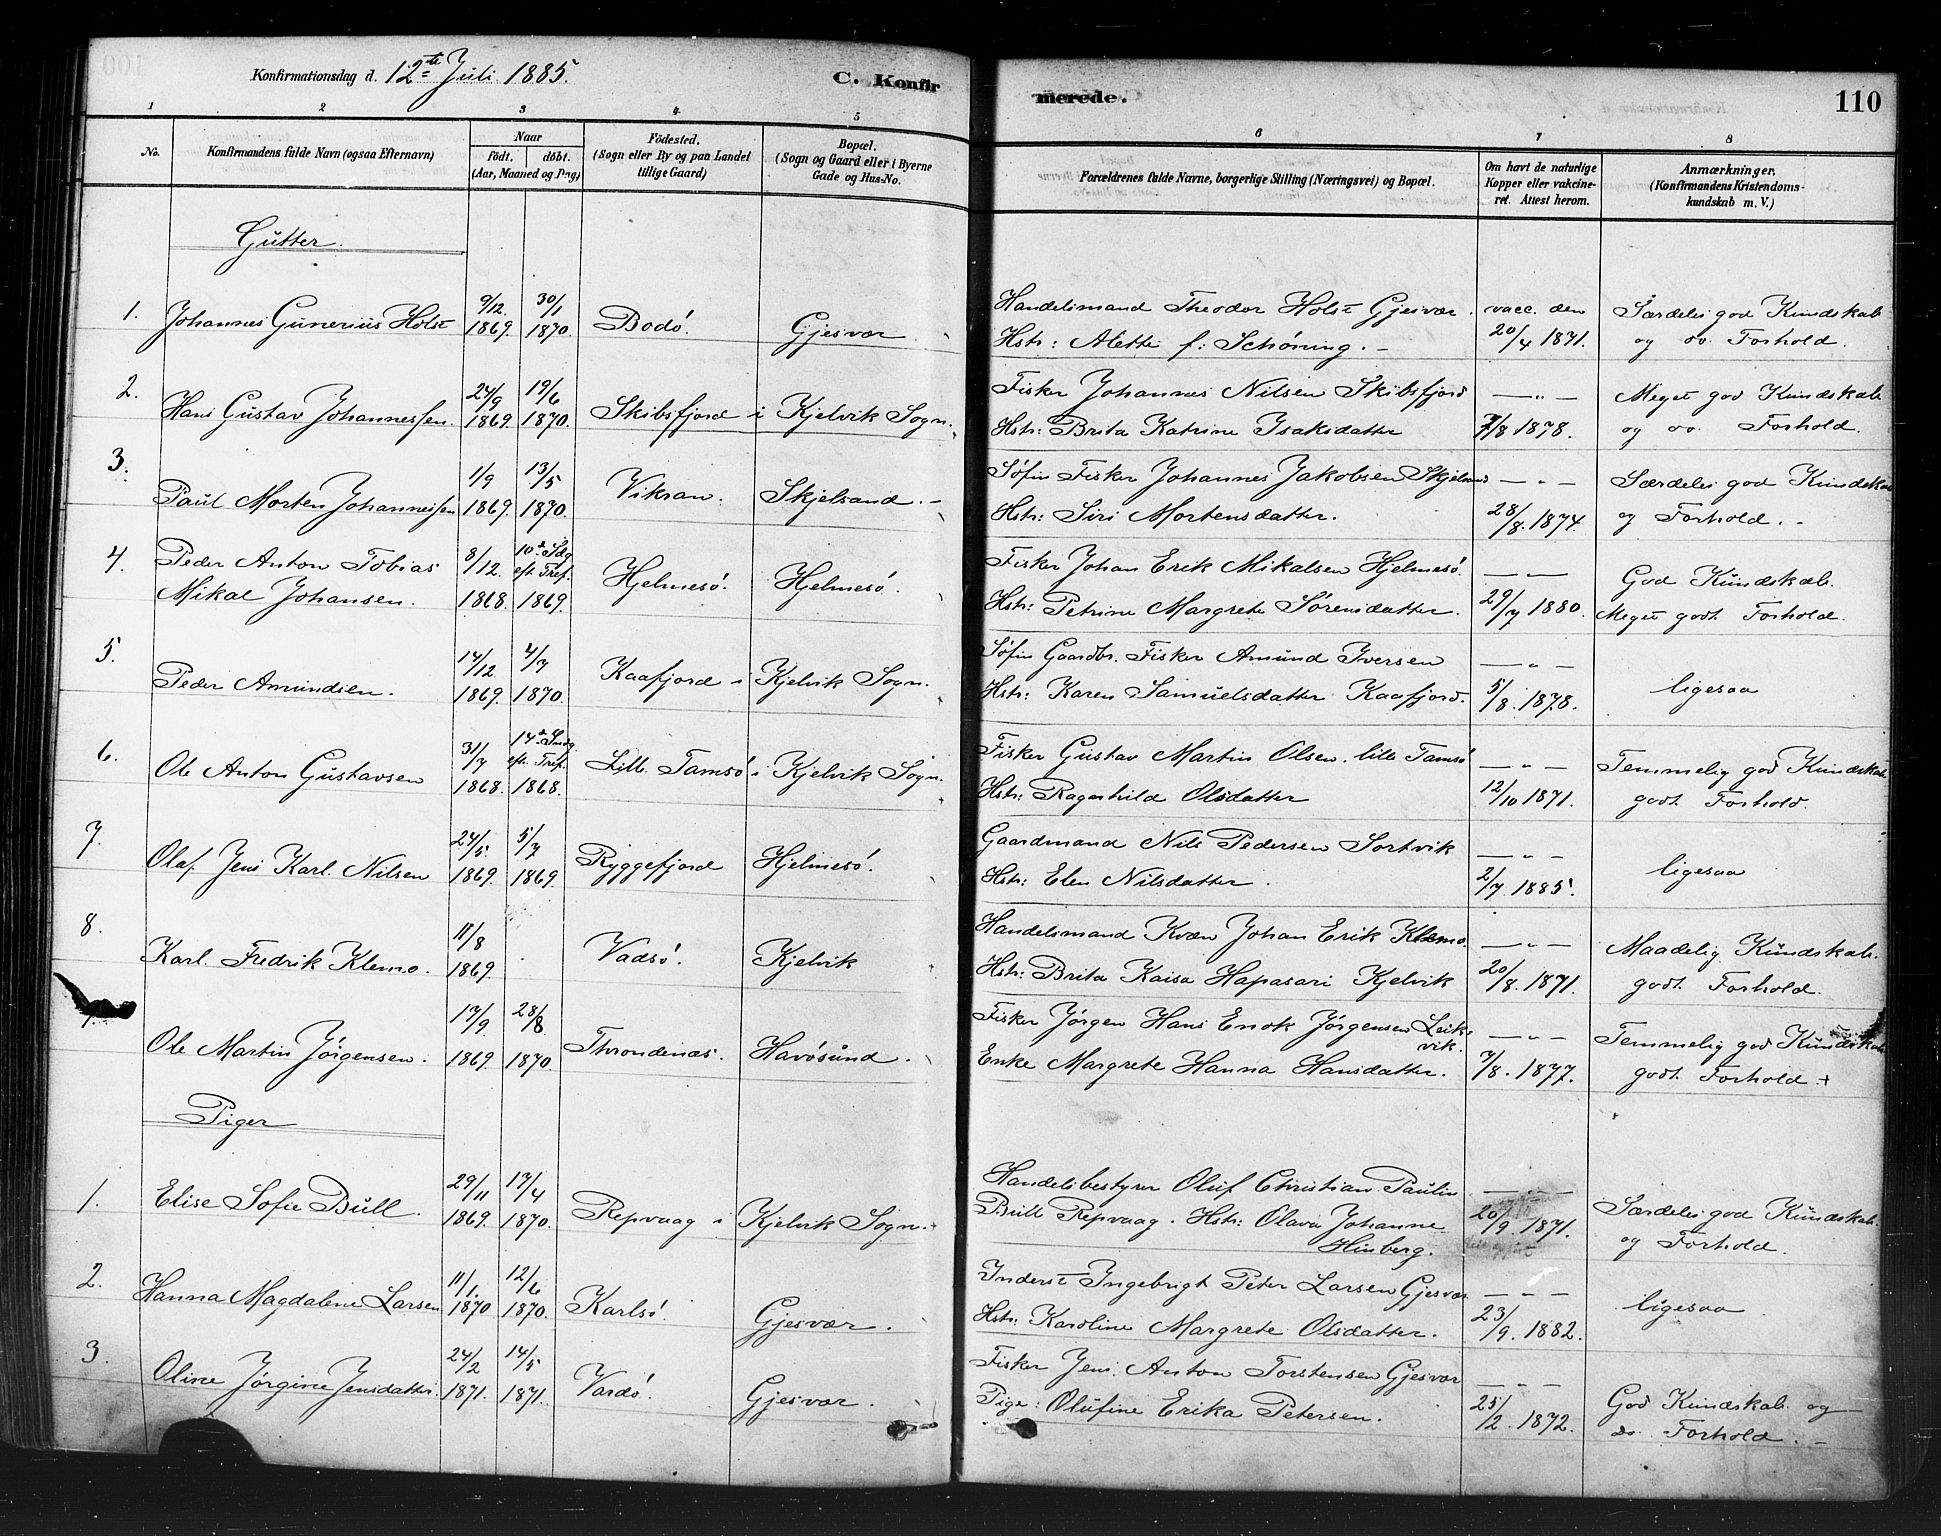 Konfirmationsdag d. 12te Juli 1885.
C. Konfir
merede.
110
1 2 3 4 5 6 7 8
No.
Konfirmandens fulde Navn (ogsaa Efternavn)
Naar
födt. döbt.
(Aar, Maaned og Dag)
Födested.
(Sogn eller By og paa Landet
tillige Gaard)
Bopæl.
(Sogn og Gaard eller i Byerne
Gade og Hus-No.
Forældrenes fulde Navne, borgerlige Stilling (Næringsvei) og Bopæl.
Om havt de naturlige
Kopper eller vakcine-
ret. Attest herom.
Anmærkninger.
(Konfirmandens Kristendoms-
kundskab m. V.)
Gutter.
1. 9/12. 30/1 Handelsmand Theodor Holst Gjesvær. vacc. den Særdeles god Kundskab
Johannes Gunerius Holst 1869. 1870. Bodö. Gjesvær Hstr: Alette f: Schöning. - 20/4 1871. og do. Forhold.
2. 24/9 19/6 Fisker Johannes Nilsen Skibsfjord — „ — Meget god Kundskab
Hans Gustav Johannessen. 1869. 1870. Skibsfjord i Kjelvik Sogn. Hstr: Brita Katrine Isaksdatter 7/8 1878. og do. Forhold.
3. 1/9 13/5 Söfin Fisker Johannes Jakobsen Skjelsand — „ — Særdeles god Kundskab
Paul Morten Johannessen 1869. 1870. Vikran. Skjelsand. - Hstr: Siri Mortensdatter. 28/8. 1874. og Forhold. -
4. Peder Anton Tobias 8/12. 10de Sdg. eft. Tref. Fisker Johan Erik Mikalsen Hjelmesö. — „ — God Kundskab.
Mikal Johansen. 1868. 1869. Hjelmesö. Hjelmesö. Hstr: Petrine Margrete Sörensdatter. 29/7 1880. Meget godt Forhold.
5. 14/12 4/7 Söfin Gaardbr. Fisker Amund Iversen — „ —
Peder Amundsen. 1869. 1870. Kaafjord i Kjelvik Sogn. Hstr: Karen Samuelsdatter Kaafjord. 5/8. 1878. ligesaa
6. 31/7 14de Sndg. eft. Tref. Fisker Gustav Martin Olsen. lille Tamsö — „ — Temmelig god Kundskab
Ole Anton Gustavsen 1868. 1868. Lille Tamsö i Kjelvik Sogn. Hstr: Ragenhild Olsdatter 12/10 1871. godt Forhold.
7. 24/5. 5/7 Gaardmand Nils Pedersen Sortvik — „ —
Olaf Jens Karl. Nilsen 1869. 1869. Ryggefjord Hjelmesö. Hstr: Elen Nilsdatter. 2/7 1885. ligesaa
8. 11/8 Handelsmand Kvæn Johan Erik Klemo. — „ — Maadelig Kundskab.
Karl. Fredrik Klemo. 1869. Vadsö. Kjelvik Hstr: Brita Kaisa Hapasari Kjelvik 20/8. 1871. godt Forhold.
17/9 28/8 Fisker Jörgen Hans Enok Jörgensen Leik- — „ — Temmelig god Kundskab
vik.
Ole Martin Jörgensen. 1869. 1870. Throndenæs. Havösund. Enke Margrete Hanna Hansdatter. 7/8. 1877. godt Forhold. +
Piger
1. 29/11 17/4 Handelsbestyrer Oluf Christian Paulin — „ —
Elise Sofie Bull. 1869. 1870. Repvaag i Kjelvik Sogn. Bull Repvaag. Hstr: Olava Johanne 20/9 1871. Særdeles god Kundskab.
Hinberg. og Forhold.
2. 11/1. 12/6 Inderst Ingebrigt Peter Larsen Gjesvær — „ —
Hanna Magdalene Larsen 1870 1870. Karlsö. Gjesvær. Hstr: Karoline Margrete Olsdatter. 23/9. 1882. ligesaa
3. 24/2 14/5 Fisker Jens. Anton Torstensen Gjesvær — „ —
Oline Jörgine Jensdatter. 1871. 1871. Vardö. Gjesvær. Pige: Olufine Erika Petersen. 25/2. 1872. God Kundskab og
do. Forhold. -